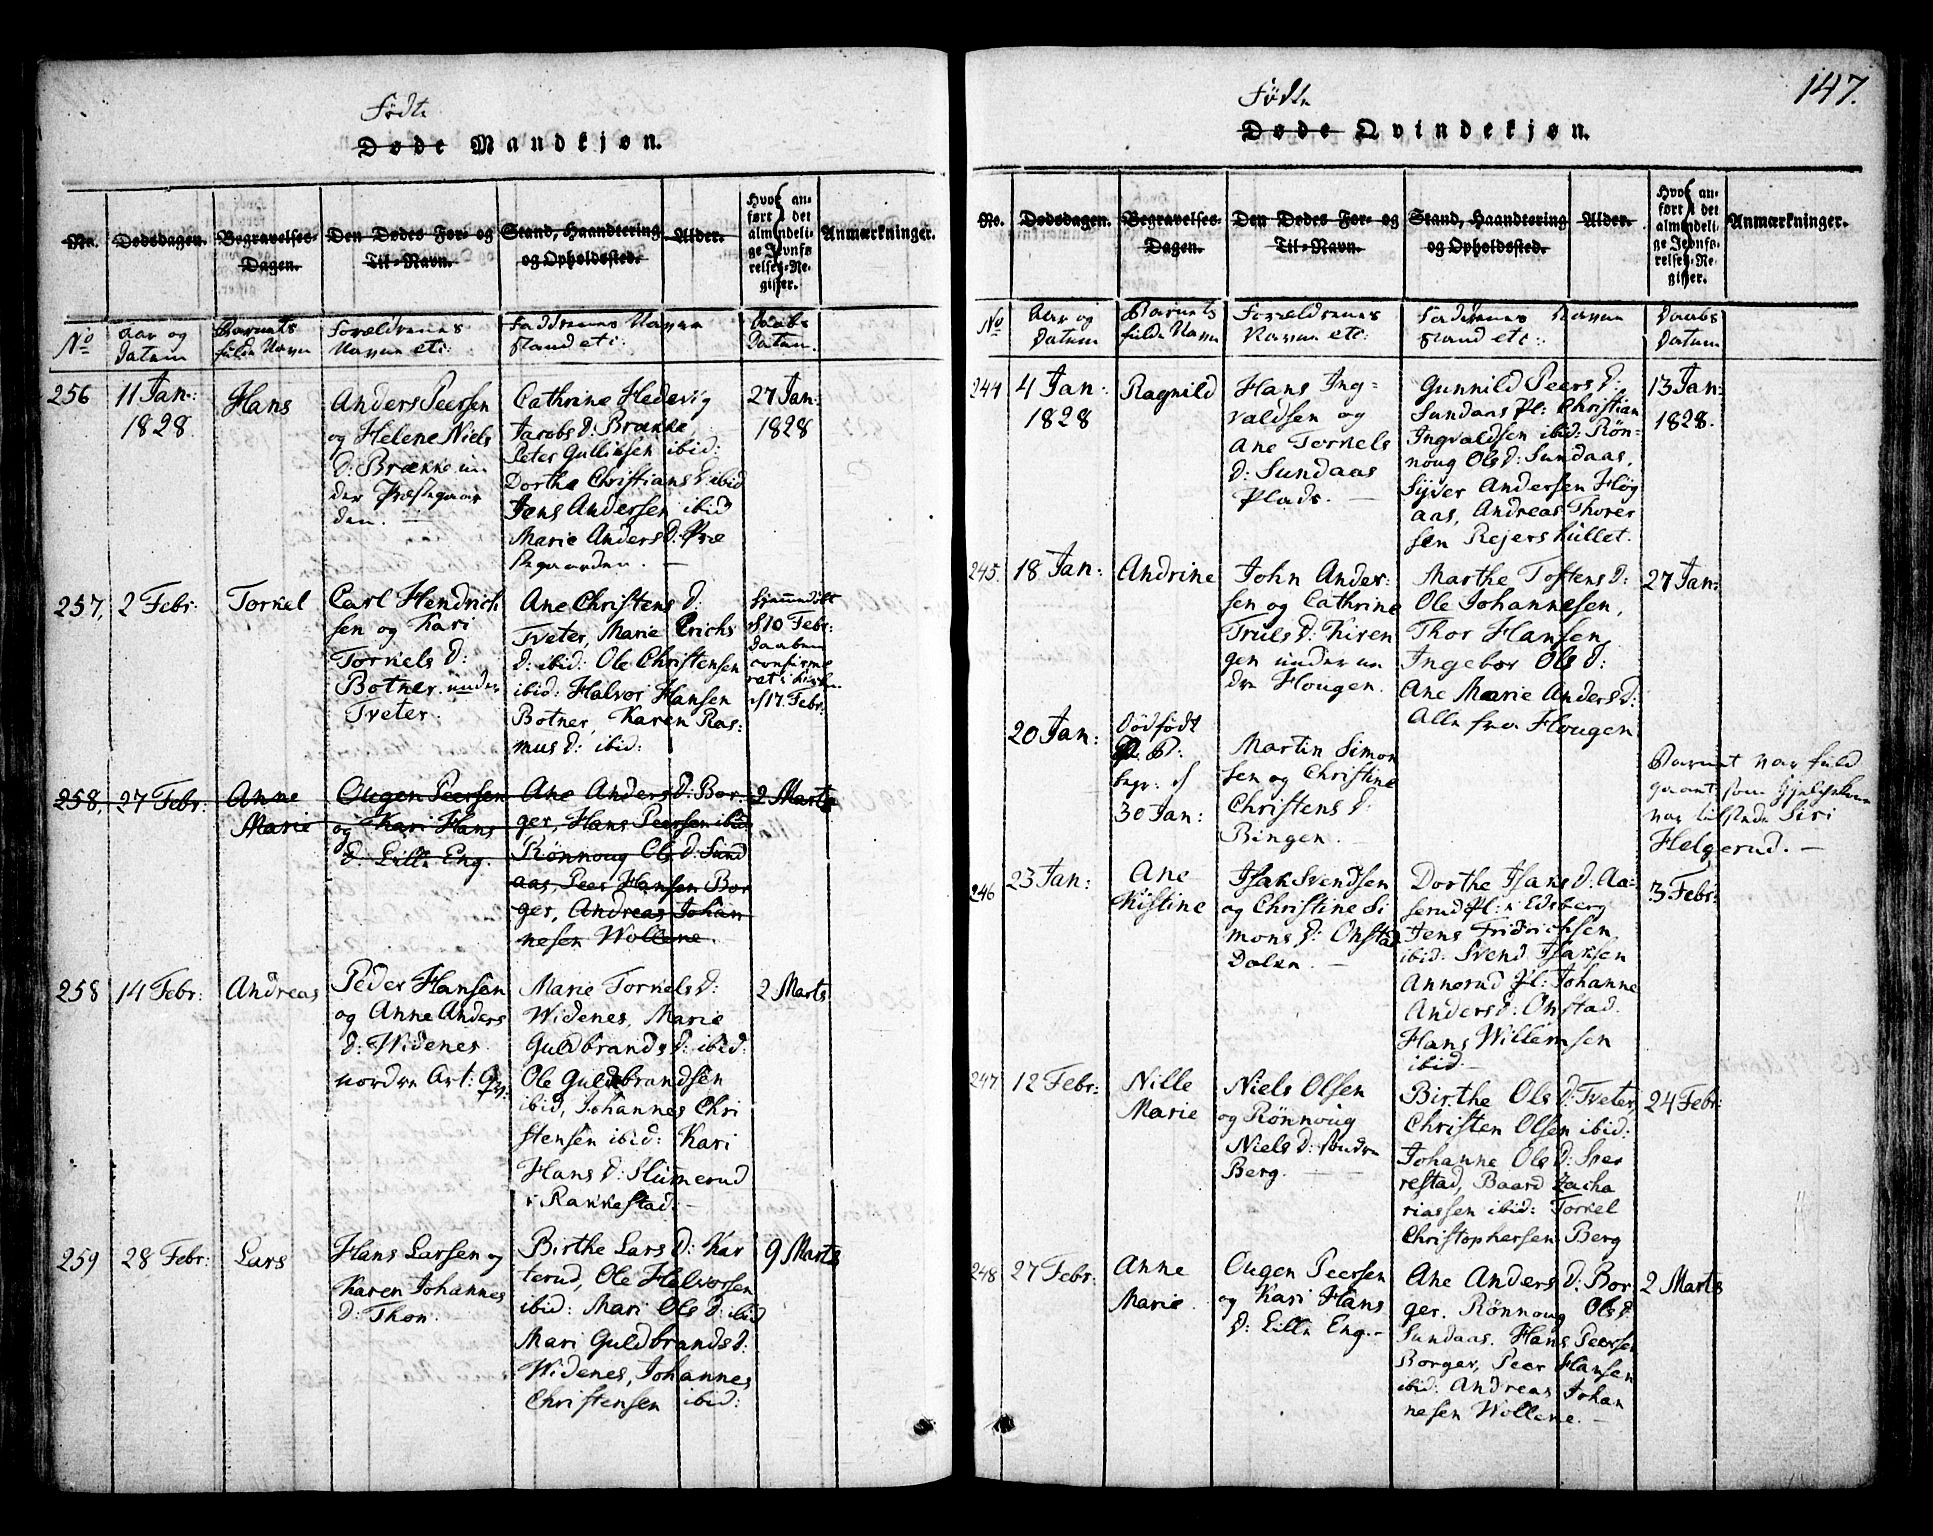 Fødte
Døde Mandkjøn.
No.
Dødsdagen.
Begravelses-
Dagen.
Den Dødes For- og
Til-Navn.
Stand, Haandtering
og Opholdssted.
Alder.
Hvor an-
ført i det
almindeli-
ge Jevnfø-
relses-Re-
gister.
Anmærkninger.
No
Aar og
Datum
Barnets
fulde Navn
Forældrenes
Navne etc:
Faddrenes Navne
stand etc:
Daabs
Datum.
256
11 Jan:
1828
Hans
Anders Peersen
og Helene Niels
D: Brække un
der Præstegaar
den. —
Cathrine Hedevig
Jacobs D: Brække,
Peter Gulliksen ibid:
Dorthe Christians D: ibid
Jens Andersen ibid
Marie Anders D: Præ
stegaarden. —
27 Jan:
1828
257,
2 Febr:
Torkel
Carl Hendrich
sen og Kari
Torkels D:
Botner under
Tveter.
Ane Christens D:
Tveter, Marie Erichs
D: ibid: Ole Christensen
ibid: Halvor Hansen
Botner, Karen Ras-
mus D: ibid:
hjemmedøbt
d/10 Febr:
Daaben
confirme
ret i Kirken
d/17 Febr:
258,
27 Febr:
Anne
Marie
Ougen Peersen
og Kari Hans
D: Lille Eng.
Ane Anders D: Bor-
ger, Hans Peersen ibid
Rønnoug Ols D: Sund
aas, Peer Hansen Bor
ger, Andreas Johan
nesen Wollene.
2 Marts
258
14 Febr:
Andreas
Peder Hansen
og Anne Anders
D: Widenes
nordre
Marie Torkels D:
Widenes, Marie
Guldbrands D: ibid:
Ole Guldbrandsen
ibid, Johannes Chri
stensen ibid: Kari
Hans D: Slumerud
i Rakkestad. —
2 Marts
259
28 Febr:
Lars
Hans Larsen og
Karen Johannes
D: Thon.
Birthe Lars D: Kar
terud, Ole Halvorsen
ibid: Mari Ols D: ibid
Mari Guldbrands D:
Widenes, Johannes
Christensen ibid:
9 Marts
147.
Fødte
Døde Qvindekjøn.
No.
Dødsdagen.
Begravelses-
Dagen.
Den Dødes For- og
Til-Navn.
Stand, Haandtering
og Opholdssted.
Alder.
Hvor an-
ført i det
almindeli-
ge Jevnfø-
relses-Re-
gister.
Anmærkninger.
No
Aar og
Datum
Barnets
fulde Navn
Forældrenes
Navne etc:
Faddrenes Navne
stand etc:
Daabs
Datum
244
4 Jan:
1828
Ragnild
Hans Ing-
valdsen og
Ane Torkels
D: Sundaas
Plads. —
Gunnild Peers D:
Sundaas Pl: Christian
Ingvaldsen ibid: Røn-
noug Ols D: Sundaas,
Syver Andersen Høg
aas, Andreas Thorer
sen Rejershullet.
13 Jan:
1828.
245.
18 Jan:
Andrine
John Ander-
sen og Cathrine
Truls D: Kiren
gen under ne
dre Hougen.
Marthe Tostens D:
Ole Johannesen,
Thor Hansen,
Ingebor Ols D:
Ane Marie Anders D:
Alle fra Hougen
27 Jan:
20 Jan:
Dødfødt
P:
begr: d
30 Jan:
Martin Simon
sen og Christine
Christens D:
Bingen. —
Barnet var fuld
gaaet som Gjordemoder
var tilstede Siri
Helgerud. —
246
23 Jan:
Ane
Kistine
Isak Svendsen
og Christine Si
mons D: Onstad
Dalen. —
Dorthe Isaks D: Aa-
serud Pl: i Edsberg
Jens Fridrichsen
ibid: Svend Isaksen
Annerud Pl: Johanne
Anders D: Onstad.
Hans Willemsen
ibid. —
3 Febr:
247
12 Febr:
Nille
Marie
Niels Olsen
og Rønnoug
Niels D: søndre
Berg. —
Birthe Ols D: Tveter,
Christen Olsen ibid:
Johanne Ols D: Sver
restad, Baard Zacha
riassen ibid: Torkel
Christophersen Berg
24 Febr:
248
27 Febr:
Anne
Marie.
Ougen Peersen
og Kari Hans
D: Lille Eng. —
Ane Anders D: Bor
ger. Rønnoug Ols D:
Sundaas. Hans Peersen
Borger, Peer Hansen
ibid: Andreas Johan
nesen Wollene. —
2 Marts